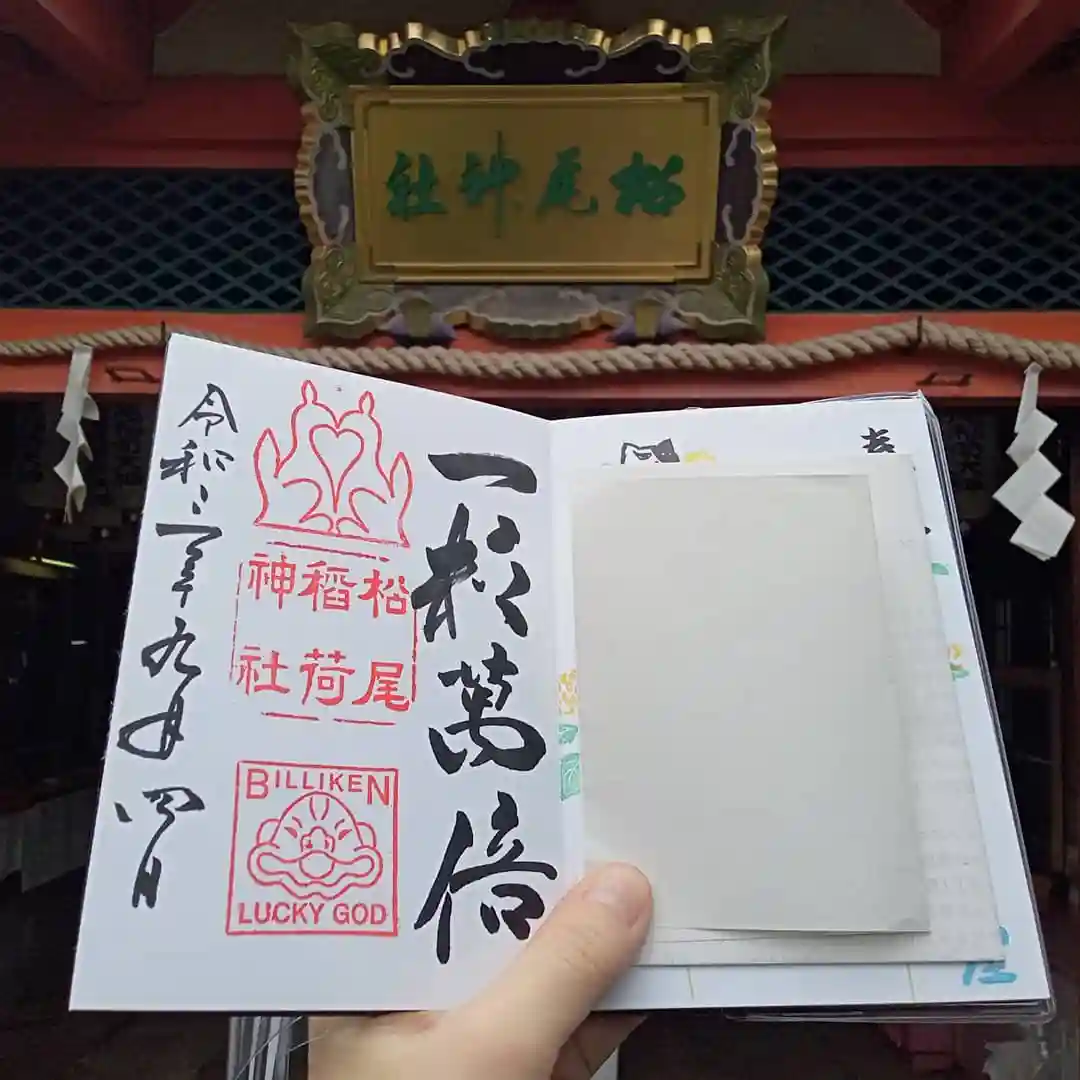 松尾神社
一粒萬倍
松尾
稲荷
神社
BILLIKEN
LUCKY GOD
令和三年九月四日